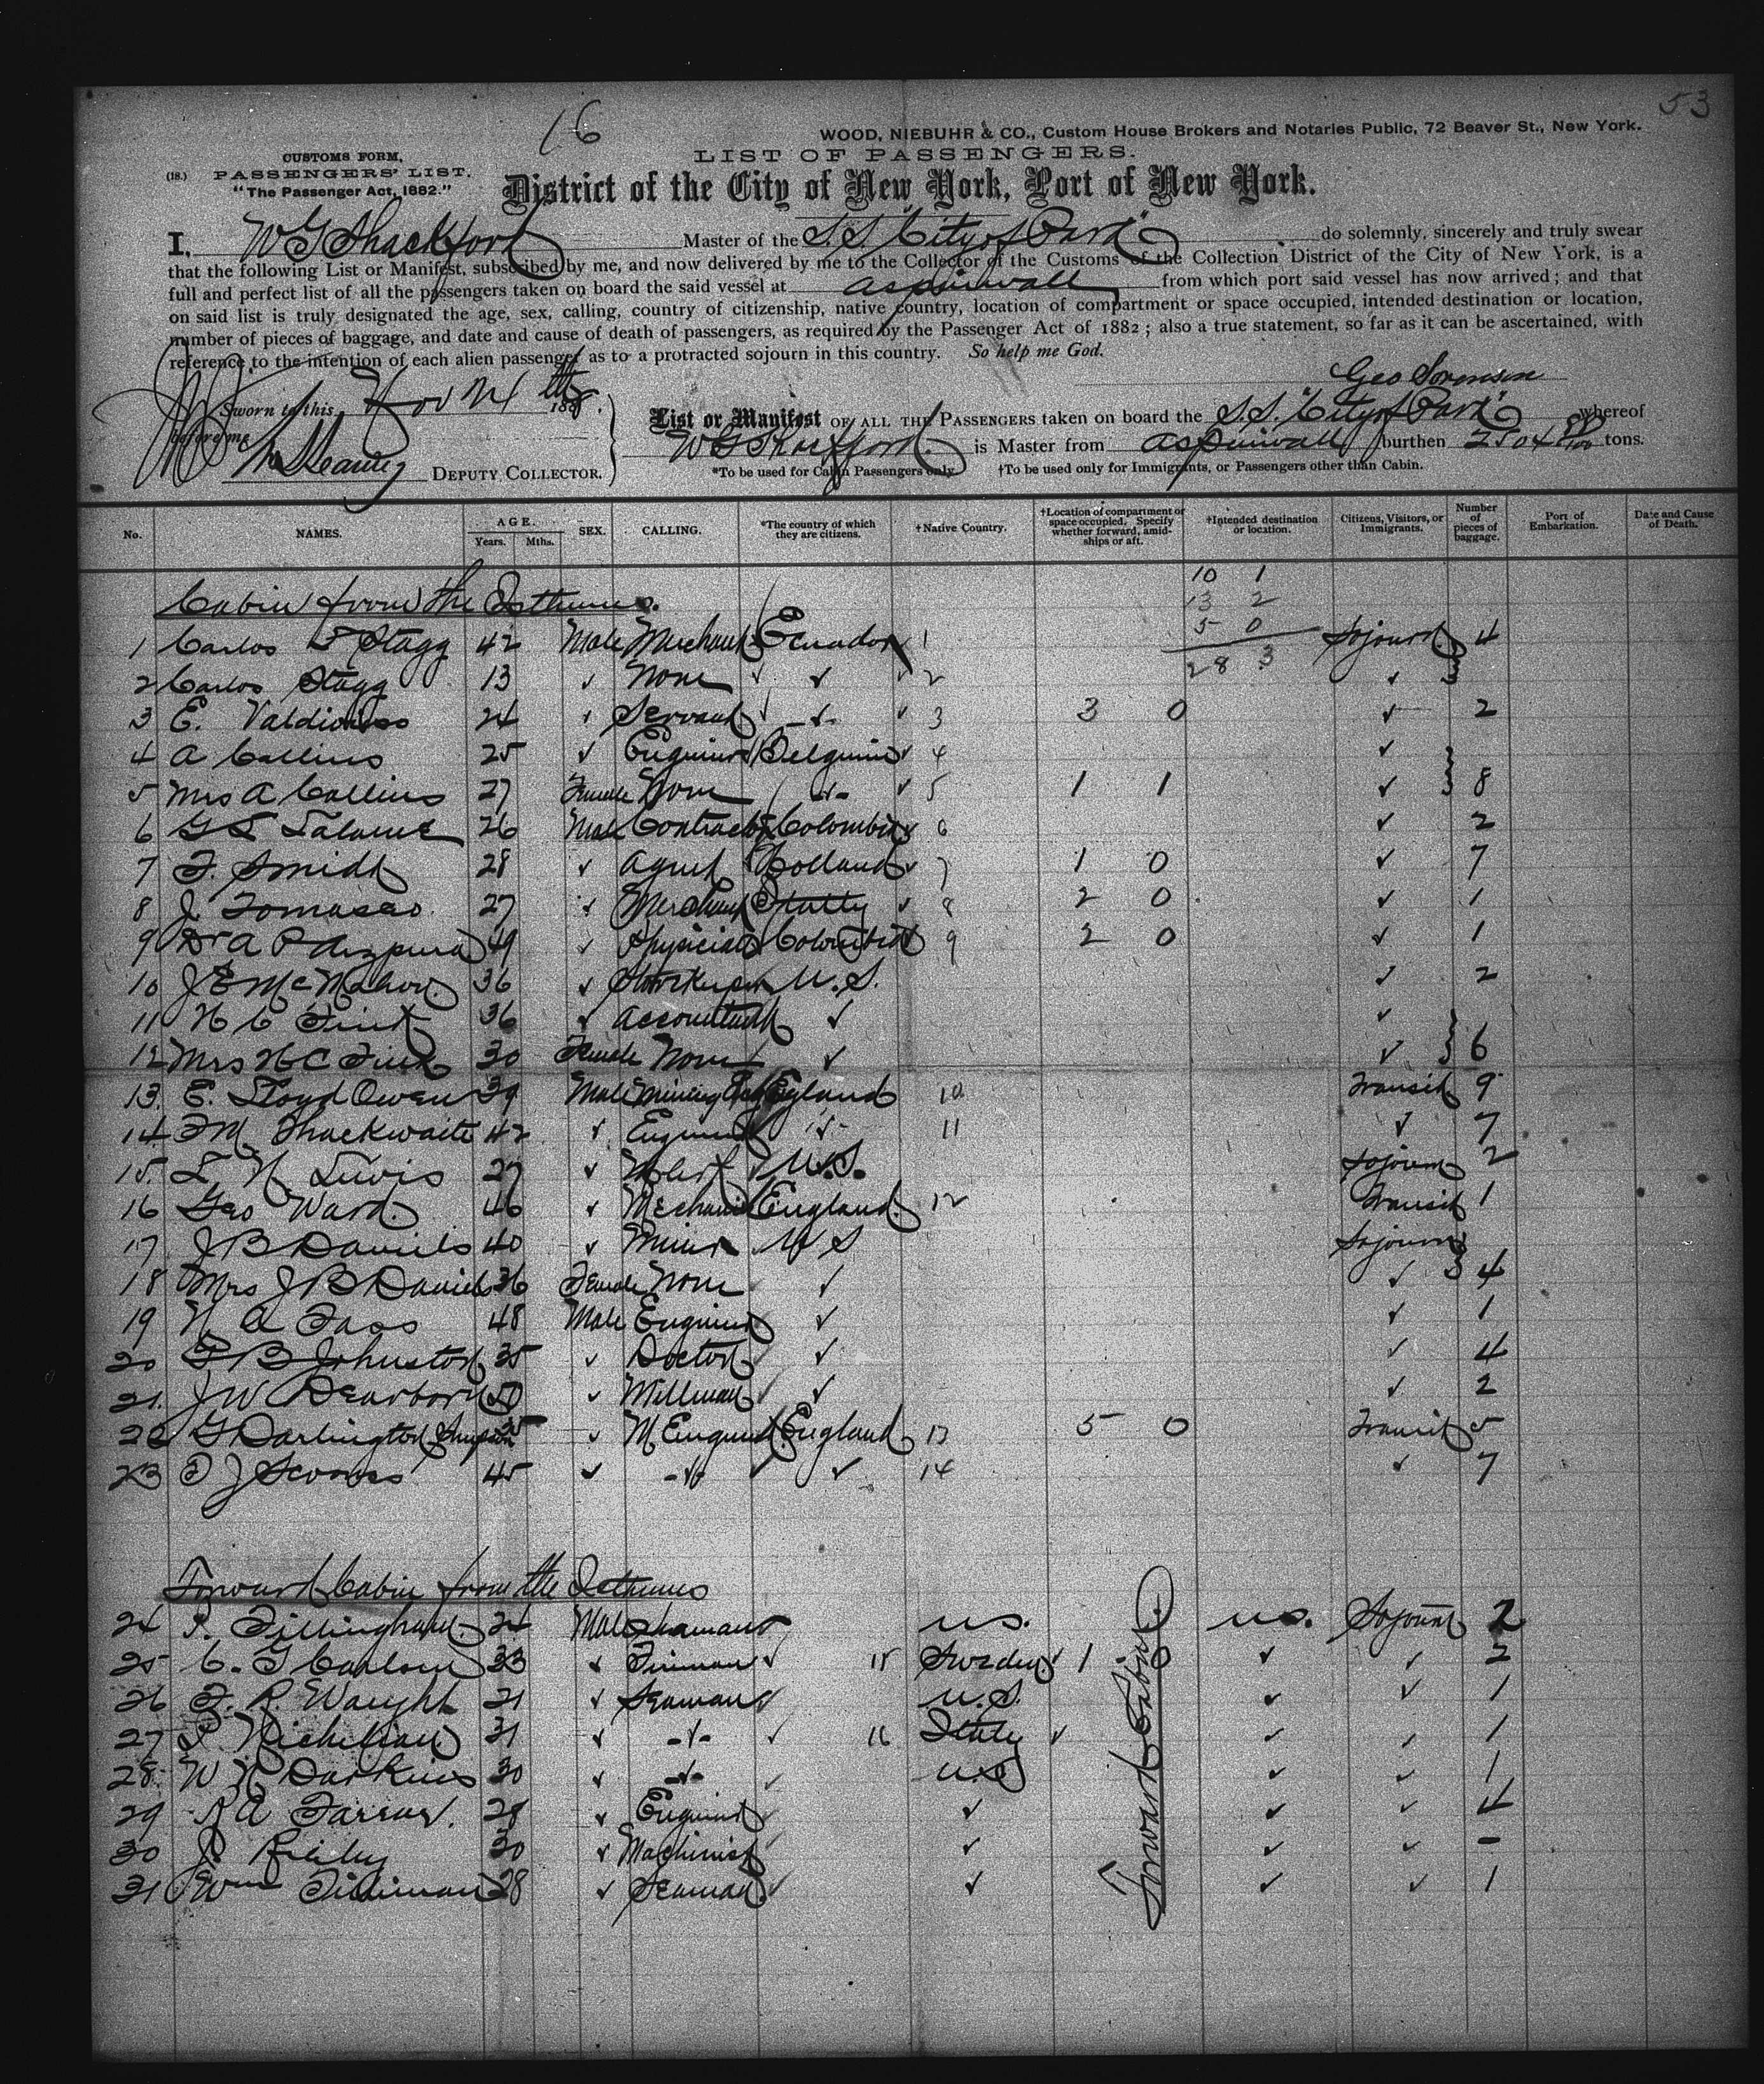 53
16
WOOD, NIEBUHR & CO., Custom House Brokers and Notaries Public, 72 Beaver St., New York.
CUSTOMS FORM,
(18.) PASSENGERS' LIST.
"The Passenger Act, 1882."
LIST OF PASSENGERS.
District of the City of New York, Port of New York.
I, W G Shackford Master of the S.S. "City of Para" do solemnly, sincerely and truly swear
that the following List or Manifest, subscribed by me, and now delivered by me to the Collector of the Customs of the Collection District of the City of New York, is a
full and perfect list of all the passengers taken on board the said vessel at Aspinwall from which port said vessel has now arrived; and that
on said list is truly designated the age, sex, calling, country of citizenship, native country, location of compartment or space occupied, intended destination or location,
number of pieces of baggage, and date and cause of death of passengers, as required by the Passenger Act of 1882; also a true statement, so far as it can be ascertained, with
reference to the intention of each alien passenger as to a protracted sojourn in this country. So help me God.
Geo Sorensen
Sworn to this Nov 188
before me
DEPUTY COLLECTOR.
List or Manifest OF ALL THE PASSENGERS taken on board the S.S. "City of Para" whereof
W G Shackford is Master from Aspinwall burthen tons.
*To be used for Cabin Passengers only. †To be used only for Immigrants, or Passengers other than Cabin.
No. NAMES. AGE. Years. Mths. SEX. CALLING. *The country of which they are citizens. †Native Country. †Location of compartment or space occupied. Specify whether forward, amidships or aft. †Intended destination or location. Citizens, Visitors, or Immigrants. Number of pieces of baggage. Port of Embarkation. Date and Cause of Death.
10 1
13 2
5 0
28 3
Cabin from the Isthmus.
1 Carlos Stagg 42 Male Merchant Ecuador 1 Sojourn 4
2 Carlos Stagg 13 ✓ None ✓ ✓ 2 ✓
3 E. 24 ✓ Servant ✓ 3 3 0 ✓ 2
4 A Collins 25 ✓ Engineer Belgium 4 ✓
5 Mrs A Collins 27 Female None 5 1 1 ✓ 8
6 26 Male Contractor Colombia 6 ✓ 2
7 F. Smidt 28 ✓ Agent Holland 7 1 0 ✓ 7
8 J. Tomaseo 27 ✓ Merchant Italy 8 2 0 ✓ 1
9 Dr A P 49 ✓ Physician Colombia 9 2 0 ✓ 1
10 J E McMahon 36 ✓ Storekeeper U.S. ✓ 2
11 H C Fink 36 ✓ Accountant ✓ ✓
12 Mrs H C Fink 30 Female None ✓ ✓ 6
13. E. Lloyd Owen 39 Male Mining Eng England 10 Transit 9
14 F M Thackwaite 42 ✓ Engineer 11 ✓ 7
15. L N Lewis 27 ✓ U.S. Sojourn 2
16 Geo Ward 46 ✓ Mechanic England 12 Transit 1
17 J B Daniels 40 ✓ Miner U S Sojourn
18 Mrs J B Daniels 36 Female None ✓ ✓ 4
19 48 Male Engineer ✓ ✓ 1
20 Johnston 35 ✓ Doctor ✓ ✓ 4
21. J W Dearborn 50 ✓ Millman ✓ ✓ 2
22 G Darlington Simpson 35 ✓ M Engineer England 13 5 0 Transit 5
23 45 ✓ ✓ 14 ✓ 7
Forward Cabin from the Isthmus
24 24 Male Seaman U.S. U.S. Sojourn 2
25 C. G Carlson 33 ✓ Fireman 15 Sweden 1 ✓ ✓ 2
26 F. R Waught 21 ✓ Seaman U.S. ✓ ✓ 1
27 31 ✓ 16 Italy ✓ ✓ 1
28 W H 30 ✓ U.S. ✓ ✓ 1
29 28 ✓ Engineer ✓ ✓ ✓ 4
30 J. Reily 30 ✓ Machinist ✓ ✓ ✓ -
31 Wm 28 ✓ Seaman ✓ ✓ ✓ 1
Forward Cabin